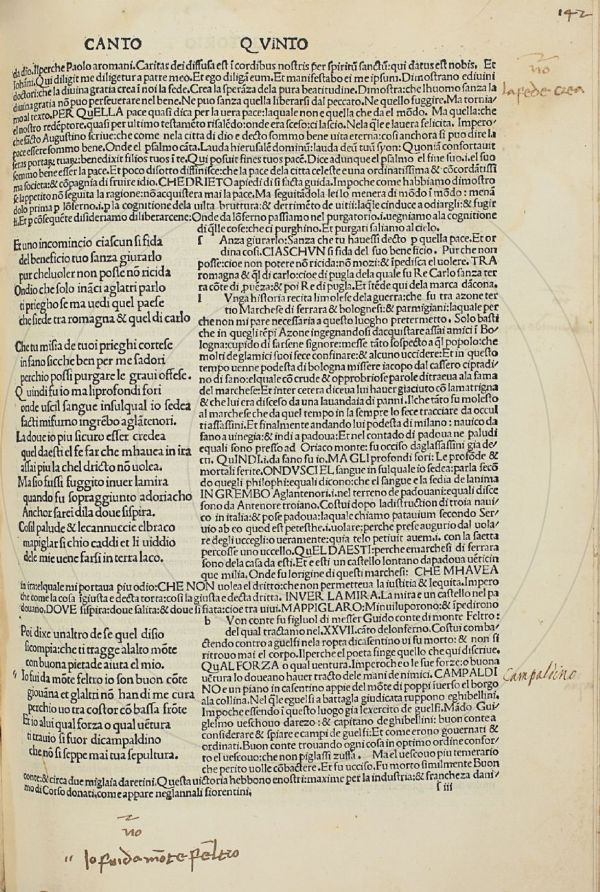 142
CANTO QVINTO
da dio. Ilperche Paolo aromani. Caritas dei diffusa est ĩ cordibus nostris per spiritũ sanctũ: qui datus est nobis. Et
Iohãni. Qui diligit me diligetur a patre meo. Et ego diligã eum. Et manifestabo ei me ipsum. Dimostrano ediuini
doctori: che la diuina gratia crea ĩ noi la fede. Crea la sperãza dela pura beatitudine. Dimostra: che lhuomo sanza la
diuina gratia nõ puo perseuerare nel bene. Ne puo sanza quella liberarsi dal peccato. Ne quello fuggire. Ma tornia/
mo al texto. PER QuELLA pace quasi dica per la uera pace: laquale non e quella che da el mõdo. Ma quella: che
el nostro redẽptore, quasi per ultimo testamẽto risalẽdo: onde era sceso: ci lascio. Nela qle e lauera felicita. Impero/
che scãto Augustino scriue: che come nela citta di dio e decto sommo bene uita eterna: cosi anchora si puo dire la
pace essere sommo bene. Onde el psalmo cãta. Lauda hierusalẽ dominũ: lauda deũ tuũ syon: Quoniã confortauit
seras portaʒ tuaʒ: benedixit filios tuos ĩ te. Qui posuit fines tuos pacẽ. Dice adunque el psalmo el fine suo .i. el suo
sommo bene esser la pace. Et poco disotto diffinisce: che la pace dela citta celeste e una ordinatissima & cõcordatissi
ma societa: & cõpagnia di fruire idio. CHE DRIETO a piedi di si facta guida. Impoche come habbiamo dimostro
se lappetito nõ seguita la ragione: nõ acquistera mai la pace. Ma seguitãdola lei lo menera di mõdo ĩ mõdo: menã
dolo prima p lõferno .i. p la cognitione dela uilta, bruttura: & detrimẽto de uitii: laqle cinduce a odiargli: & fugir
li. Et p cõsequẽte disideriamo di liberarcene: Onde da lõferno passiamo nel purgatorio .i. uegniamo ala cognitione
di qlle cose: che ci purghino. Et purgati saliamo al cielo.
Et uno incomincio ciascun si fida
del beneficio tuo sanza giurarlo
pur cheluoler non posse nõ ricida
Ondio che solo inãci aglatri parlo
ti priegho se ma uedi quel paese
che siede tra romagna & quel di carlo
Che tu misia de tuoi prieghi cortese
in fano sicche ben per me sadori
perchio possi purgare le graui offese.
Quindi fu io ma liprofondi fori
onde uscil sangue insulqual io sedea
facti mifurno ingrẽbo aglãtenori.
La doue io piu sicuro esser credea
quel daesti el fe far che mhauea in ira
assai piu la chel dricto nõ uolea.
Ma sio fussi fuggito inuer lamira
quando fu sopraggiunto adoriacho
Anchor sarei dila doue sispira.
Corsi al palude & lecannuccie elbraco
mapiglar si chio caddi et li uiddio
dele mie uene farsi in terra laco.
s Anza giurarlo: Sanza che tu hauessi decto p quella pace. Et or
dina cosi. CIASCHVN si fida del suo beneficio. Pur che non
posse: cioe non potere nõ ricida: nõ mozi: & spedisca el uolere. TRA
romagna & ql di carlo: cioe di pugla dela quale fu Re Carlo sanza ter
ra cõte di puẽza: & poi Re di pugla. Et ĩtẽde qui dela marca dãcona.
l Vnga historia recita limolese dela guerra: che fu tra azone ter
tio Marchese di ferrara & bolognesi: & parmigiani: laquale per
che non mi pare necessaria a questo luogho pretermetto. Solo basti
che in quegli tẽpi Azone ingegnandosi dacquistare assai amici ĩ Bo/
logna: cupido di farsene signore: messe tãto sospecto a ql popolo: che
molti deglamici suoi fece confinare: & alcuno uccidere: Et in questo
tempo uenne podesta di bologna missere iacopo dal cassero cipradi/
no di fano: elquale cõ crude & opprobriose parole ditraeua ala fama
del marchese: Et inter cetera diceua lui hauer giaciuto cõ lamatrigna
& che lui era disceso da una lauandaia di panni. Ilche tãto fu molesto
al marchese che da quel tempo in la sempre lo fece tracciare da occul
ti assassini. Et finalmente andando lui podesta di milano: nauico da
fano a uinegia: & indi a padoua: Et nel contado di padoua ne paludi
equali sono presso ad Oriaco monte: fu occiso daglassassini gia de/
cti. QuINDI.i. da fano fu io. MA GLI profondi fori: Le profõde &
mortali ferite. ONDVSCI EL sangue in sulquale io sedea: parla secõ
do quegli philophi: equali dicono: che el sangue e la sedia de lanima
IN GREMBO Aglantenori .i. nel terreno de padouani: equali disce
sono da Antenore troiano. Costui dopo la distructiõ di troia naui/
co in italia: & pose padoua: laquale chiamo patauium secondo Ser/
uio ab eo quod est petesthe .i. uolare: perche prese augurio dal uola/
re degli uccegli: o ueramente: quia telo petiuit auem .i. con la saetta
percosse uno uccello. QuEL DAESTI: perche emarchesi di ferrara
sono dela casa da esti. Et e esti un castello lontano da padoua uẽticin
que milia. Onde fu lorigine di questi marchesi: CHE MHAVEA
in ira: elquale mi portaua piu odio: CHE NON uolea el dritto: che non permetteua la iustitia & lequita. Impero
che come la cosa igiusta e decta torta: cosi la giusta e decta dritta. INVER LA MIRA. La mira e un castello nel pa
douano. DOVE sispira: doue salita: & doue si fiata: cioe tra uiui. MAPPIGLARO: Minuiluporono: & spedirono
Poi dixe unaltro de se quel disio
si compia: che ti tragge alalto mõte
con buona pietade aiuta el mio.
" Io fui da mõte feltro io son buon cõte
giouãna et glaltri nõ han di me cura
perchio uo tra costor cõ bassa frõte
Et io alui qual forza o qual uẽtura
ti trauio si fuor di campaldino
che nõ si seppe mai tua sepultura.
b Von conte fu figluol di messer Guido conte di monte Feltro:
del qual tractamo nel .XXVII. cãto delonferno. Costui comba/
ctendo contro a guelfi nela ropta dicasentino ui fu morto: & non si
ritrouo mai el corpo. Ilperche el poeta finge quello che qui discriue.
QuAL FORZA o qual uentura. Imperoche o le sue forze: o buona
uẽtura lo doueano hauer tracto dele mani de nimici. CAMPALDI
NO e un piano in casentino appie del mõte di poppi iuerso el borgo
ala collina. Nel qle eguelfi a battaglia giudicata ruppono eghibellini.
Impoche essendo ĩ questo luogo gia lexercito de guelfi. Mãdo Gui/
glelmo ueschouo darezo: & capitano de ghibellini: buon conte a
considerare & spiare e campi de guelfi: Et come erono gouernati &
ordinati. Buon conte trouando ogni cosa in optimo ordine confor/
to el uescouo: che non piglassi zuffa. Ma el uescouo piu temerario
che perito uolle cõbactere. Et fu ucciso. Fu morto similmente Buon
conte: & circa due miglaia daretini. Questa uictoria hebbono enostri: maxime per la industria: & francheza dani/
mo di Corso donati, come appare neglannali fiorentini.
f iii
no
la fede crea
Campaldino
no
" Io fui da mõte feltro